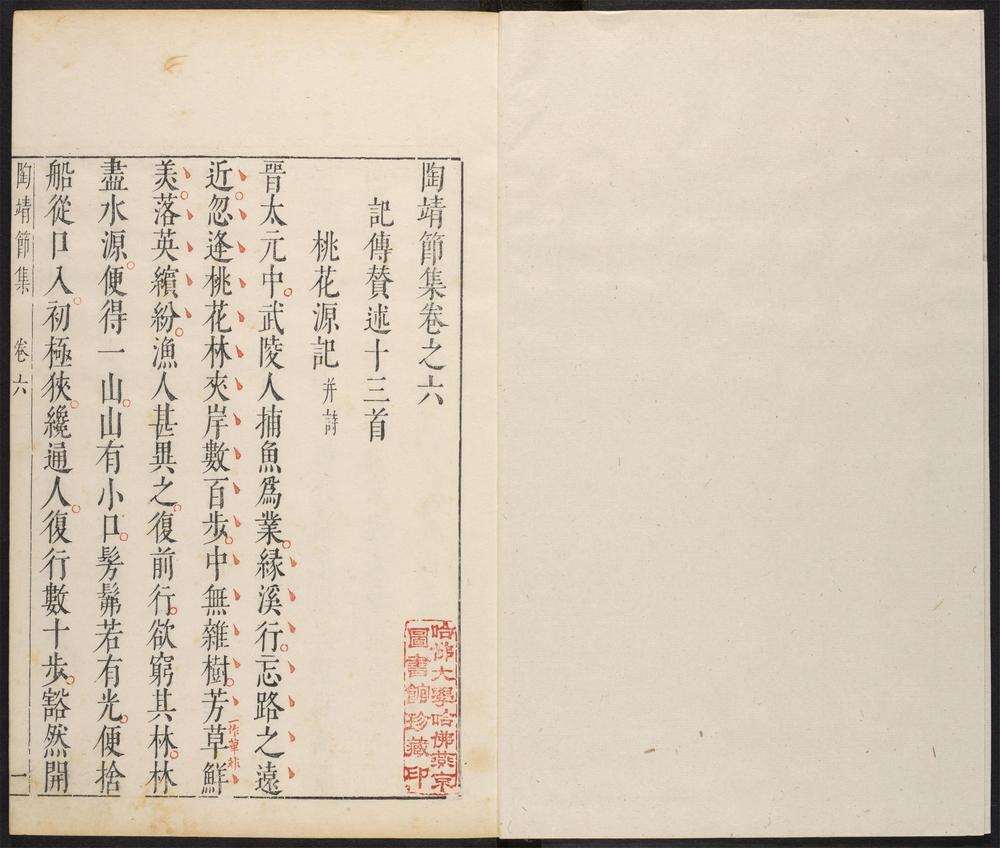 陶靖節集卷之六
記傳贊述十三首
桃花源記并詩
晉太元中。武陵人捕魚爲業。緣溪行。忘路之遠
近。忽逢桃花林。夾岸數百步。中無雜樹。芳草鮮
一作華
美。落英繽紛。漁人甚異之。復前行。欲窮其林。林
盡水源。便得一山。山有小口。髣髴若有光。便捨
船從口入。初極狹。纔通人。復行數十步。豁然開
陶靖節集 卷六 一
哈佛大學哈佛燕京
圖書館珍藏印